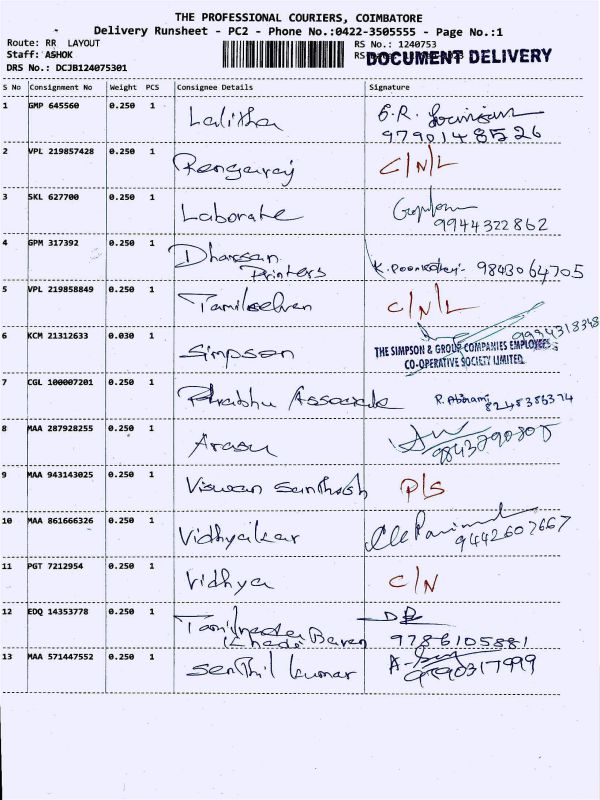 THE PROFESSIONAL COURIERS, COIMBATORE
Delivery Runsheet - PC2 - Phone No.:0422-3505555 - Page No.:1
Route: RR LAYOUT
RS No.: 1240753
Staff: ASHOK
DOCUMENT DELIVERY
DRS No.: DCJB124075301
S No Consignment No Weight PCS Consignee Details Signature
1 GMP 645560 0.250 1 Lalitha G.R.
9790148526
2 VPL 219857428 0.250 1 Rengaraj C/N/L
3 SKL 627700 0.250 1 Laborate
9944322862
4 GPM 317392 0.250 1 Dharsan
Printers 9843064705
5 VPL 219858849 0.250 1 Tamilselvan C/N/L
9994318348
6 KCM 21312633 0.030 1 Simpson THE SIMPSON & GROUP COMPANIES EMPLOYEES
CO-OPERATIVE SOCIETY LIMITED
7 CGL 100007201 0.250 1 Prabhu Associate R. Abirami 8248386374
8 MAA 287928255 0.250 1 Arasu
9 MAA 943143025 0.250 1 Viswan Santhosh P/S
10 MAA 861666326 0.250 1 Vidhyakar
9442607667
11 PGT 7212954 0.250 1 Vidhya C/N
12 EDQ 14353778 0.250 1 Tamilnadu
Khadi Bavan 9786105881
13 MAA 571447552 0.250 1 Senthil kumar